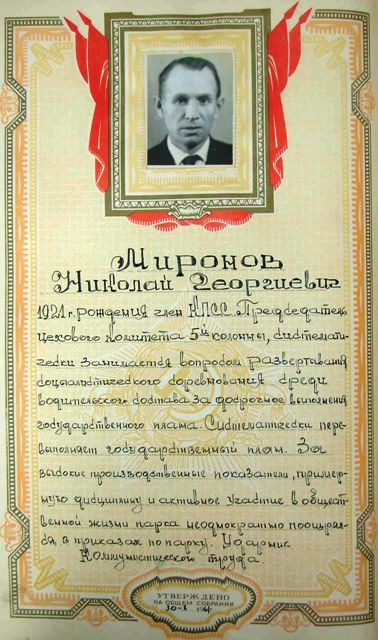 Миронов
Николай Георгиевич
1921 г. рождения член КПСС. Председатель
цехового комитета 5й колоны, системати-
чески занимается вопросом развертывания
социалистического соревнования среди
водительского состава за досрочное выполнения
государственного плана. Систематически пере-
выполняет государственный план. За
высокие производственные показатели, пример-
ную дисциплину и активное участие в общест-
венной жизни парка неоднократно поощрял-
ся в приказах по парку. Ударник
Коммунистического труда
УТВЕРЖДЕНО
НА ОБЩЕМ СОБРАНИИ